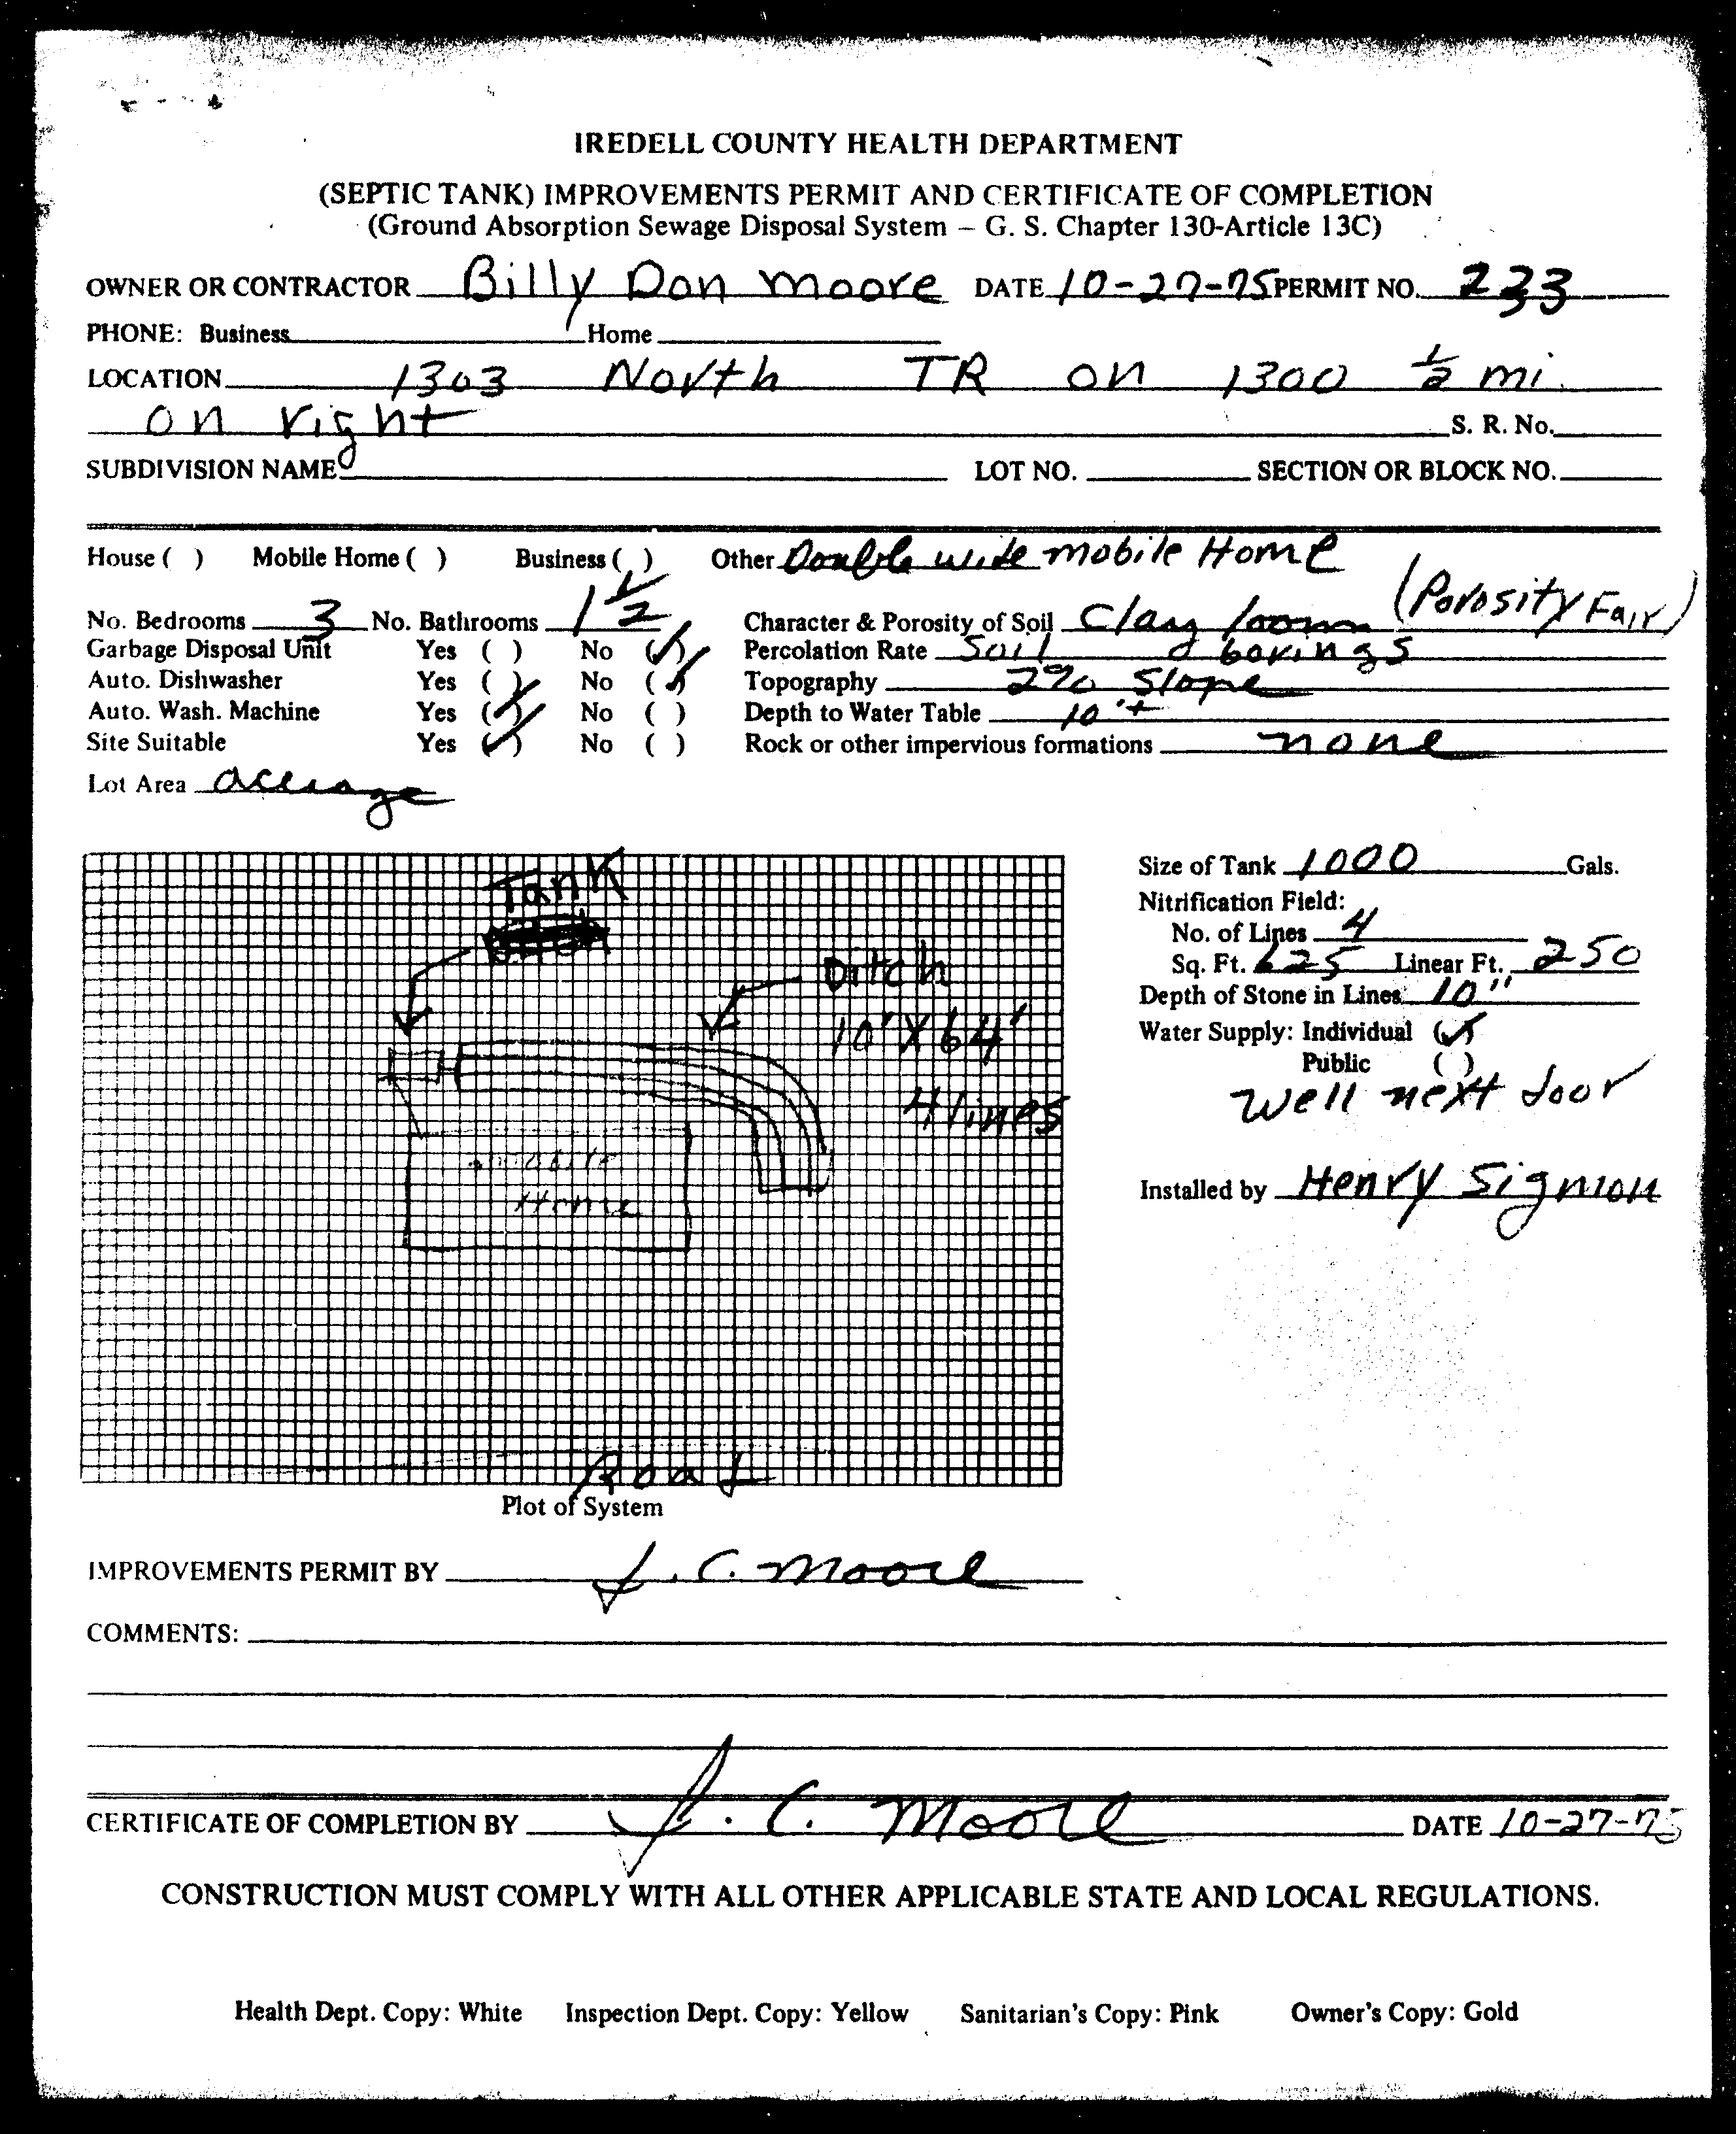 IREDELL COUNTY HEALTH DEPARTMENT
(SEPTIC TANK) IMPROVEMENTS PERMIT AND CERTIFICATE OF COMPLETION
(Ground Absorption Sewage Disposal System – G. S. Chapter 130-Article 13C)
OWNER OR CONTRACTOR Billy Don Moore DATE 10-27-75 PERMIT NO. 233
PHONE: Business Home
LOCATION 1303 North TR on 1300 1/2 mi.
on right S. R. No.
SUBDIVISION NAME LOT NO. SECTION OR BLOCK NO.
House ( ) Mobile Home ( ) Business ( ) Other Double wide mobile Home
No. Bedrooms 3 No. Bathrooms 1 1/2 Character & Porosity of Soil Clay loam (Porosity Fair)
Garbage Disposal Unit Yes ( ) No (✓) Percolation Rate Soil borings
Auto. Dishwasher Yes ( ) No (✓) Topography 2% Slope
Auto. Wash. Machine Yes (✓) No ( ) Depth to Water Table 10'+
Site Suitable Yes (✓) No ( ) Rock or other impervious formations none
Lot Area acreage
Tank
Ditch
10' X 64'
4 lines
Mobile
Home
Road
Plot of System
Size of Tank 1000 Gals.
Nitrification Field:
No. of Lines 4
Sq. Ft. 625 Linear Ft. 250
Depth of Stone in Lines 10"
Water Supply: Individual (✓)
Public ( )
Well next door
Installed by Henry Sigmon
IMPROVEMENTS PERMIT BY J. C. Moore
COMMENTS:
CERTIFICATE OF COMPLETION BY J. C. Moore DATE 10-27-75
CONSTRUCTION MUST COMPLY WITH ALL OTHER APPLICABLE STATE AND LOCAL REGULATIONS.
Health Dept. Copy: White Inspection Dept. Copy: Yellow Sanitarian's Copy: Pink Owner's Copy: Gold